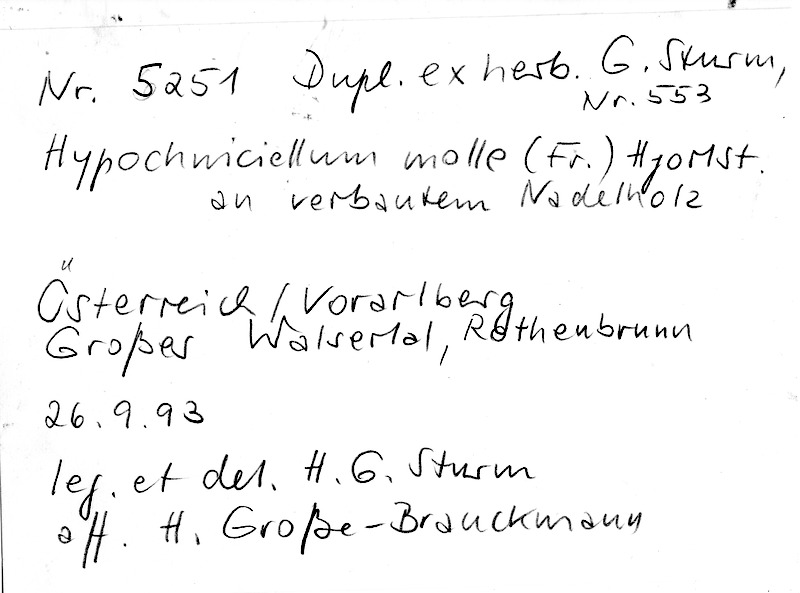 Nr. 5251 Dupl. ex herb. G. Sturm,
Nr. 553
Hypochniciellum molle (Fr.) Hjortst.
an verbautem Nadelholz
Österreich / Vorarlberg
Großes Walsertal, Rothenbrunn
26.9.93
leg. et det. H. G. Sturm
aff. H. Große-Brauckmann